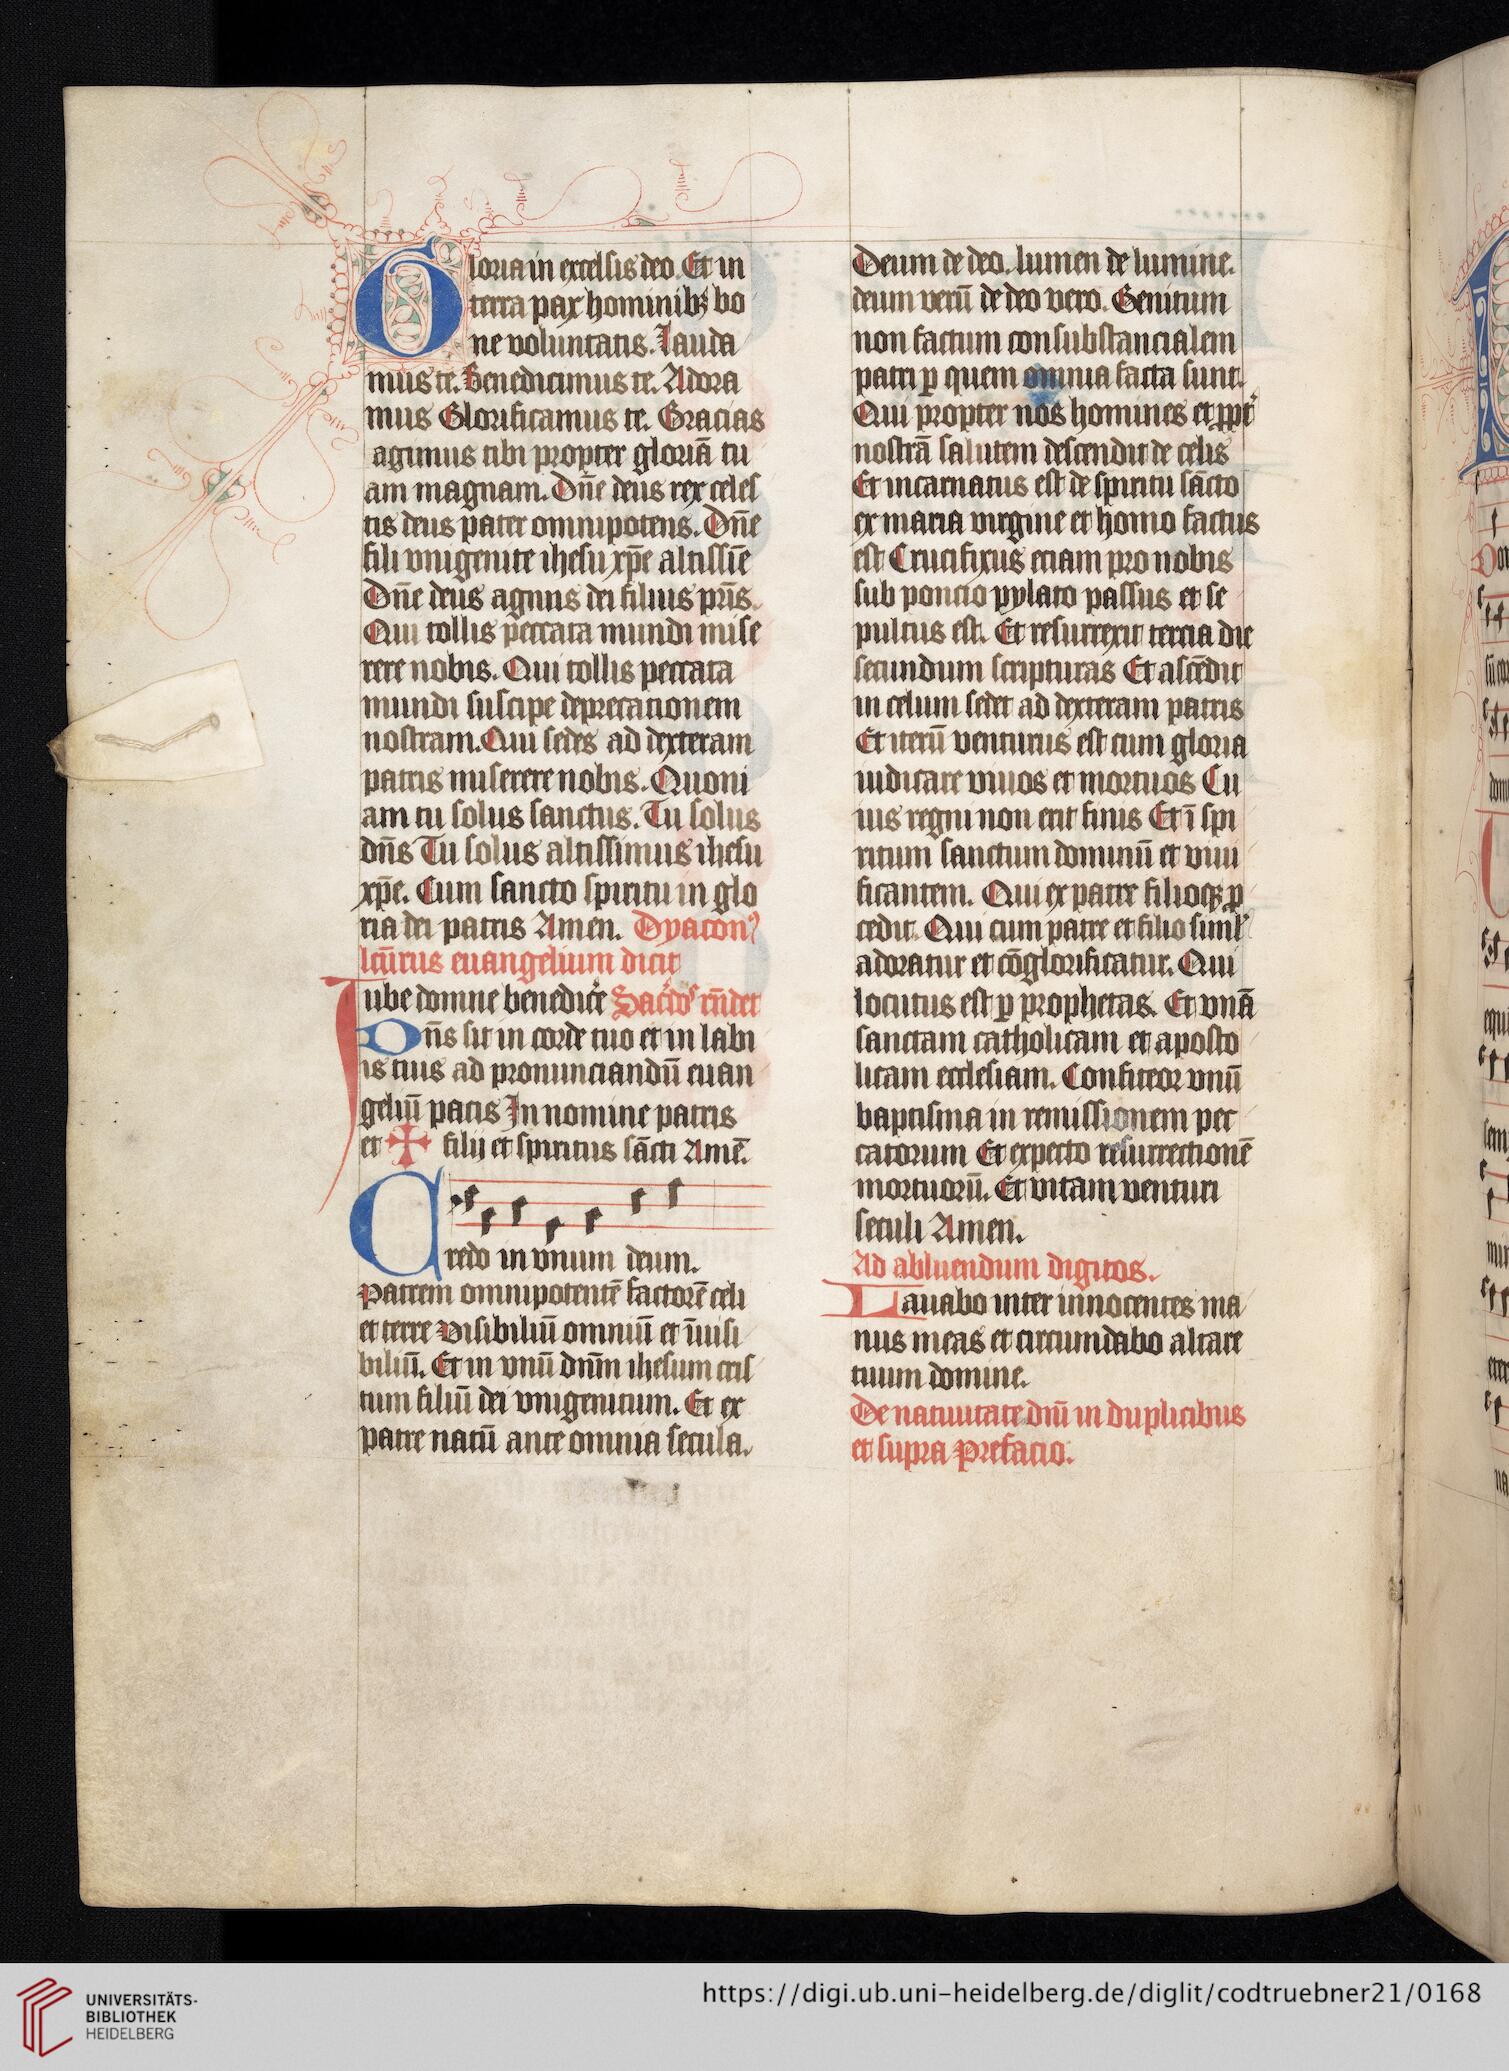 Gloria in excelsis deo. Et in
terra pax hominibꝫ bo
ne voluntatis. Lauda
mus te. Benedicimus te. Adora
mus Glorificamus te. Gracias
agimus tibi propter gloriā tu
am magnam. Dn̄e deus rex celes
tis deus pater omnipotens. Dn̄e
fili vnigenite ihesu xp̄e altissīe
Dn̄e deus agnus dei filius pr̄is.
Qui tollis peccata mundi mise
rere nobis. Qui tollis peccata
mundi suscipe deprecationem
nostram. Qui sedes ad dexteram
patris miserere nobis. Quoni
am tu solus sanctus. Tu solus
dn̄s Tu solus altissimus ihesu
xp̄e. Cum sancto spiritu in glo
ria dei patris Amen. Dyaconꝰ
lcūrus euangelium dicit
Iube domne benedic͛e Sac͛dos rn̄det
Dn̄s sit in corde tuo et in labi
is tuis ad pronunciandū euan
geliū pacis In nomine patris
et ✠ filij et spiritus sāncti Amē.
Credo in vnum deum.
Patrem omnipotentē factorē celi
et terre visibiliū omniū et īuisi
biliū. Et in vnū dnm̄ ihesum cris
tum filiū dei vnigenitum. Et ex
patre natū ante omnia secula.
Deum de deo. lumen de lumine.
deum verū de deo vero. Genitum
non factum consubstancialem
patri ꝑ quem omnia facta sunt.
Qui propter nos homines et ꝓpt͛
nostrā salutem descendit de celis
Et incarnatus est de spiritu sāncto
ex maria virgine et homo factus
est Crucifixus eciam pro nobis
sub poncio pylato passus et se
pultus est. Et resurrexit tercia die
secundum scripturas Et ascēdit
in celum sedet ad dexteram patris
Et iterū venturus est cum gloria
iudicare viuos et mortuos Cu
ius regni non erit finis Et ī spi
ritum sanctum dominū et viui
ficantem. Qui ex patre filioqꝫ ꝓ
cedit. Qui cum patre et filio simlʼ
adoratur et cōglorificatur. Qui
locutus est ꝑ prophetas. Et vnā
sanctam catholicam et aposto
licam ecclesiam. Confiteor vnū
baptisma in remissionem pec
catorum Et expecto resurrectionē
mortuorū. Et vitam venturi
seculi Amen.
Ad abluendum digitos.
Lauabo inter innocentes ma
nus meas et circumdabo altare
tuum domine.
De natiuitate dnī in duplicibus
et supra Prefacio.
UNIVERSITÄTS-
BIBLIOTHEK
HEIDELBERG
https://digi.ub.uni-heidelberg.de/diglit/codtruebner21/0168